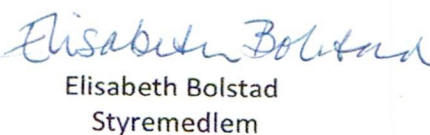 Elisabeth Bolstad
Elisabeth Bolstad
Styremedlem